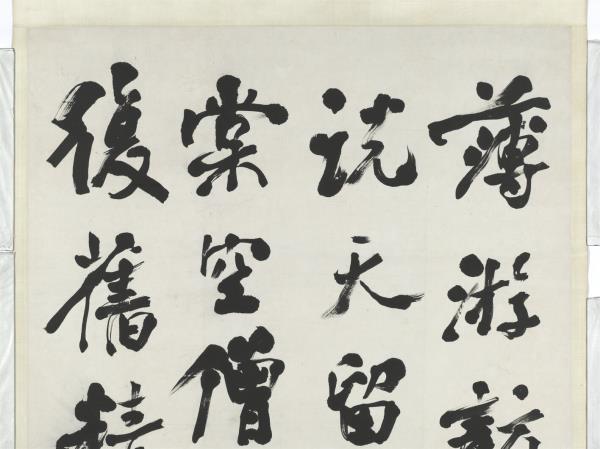 薄游
説天留
棠空僧
復舊